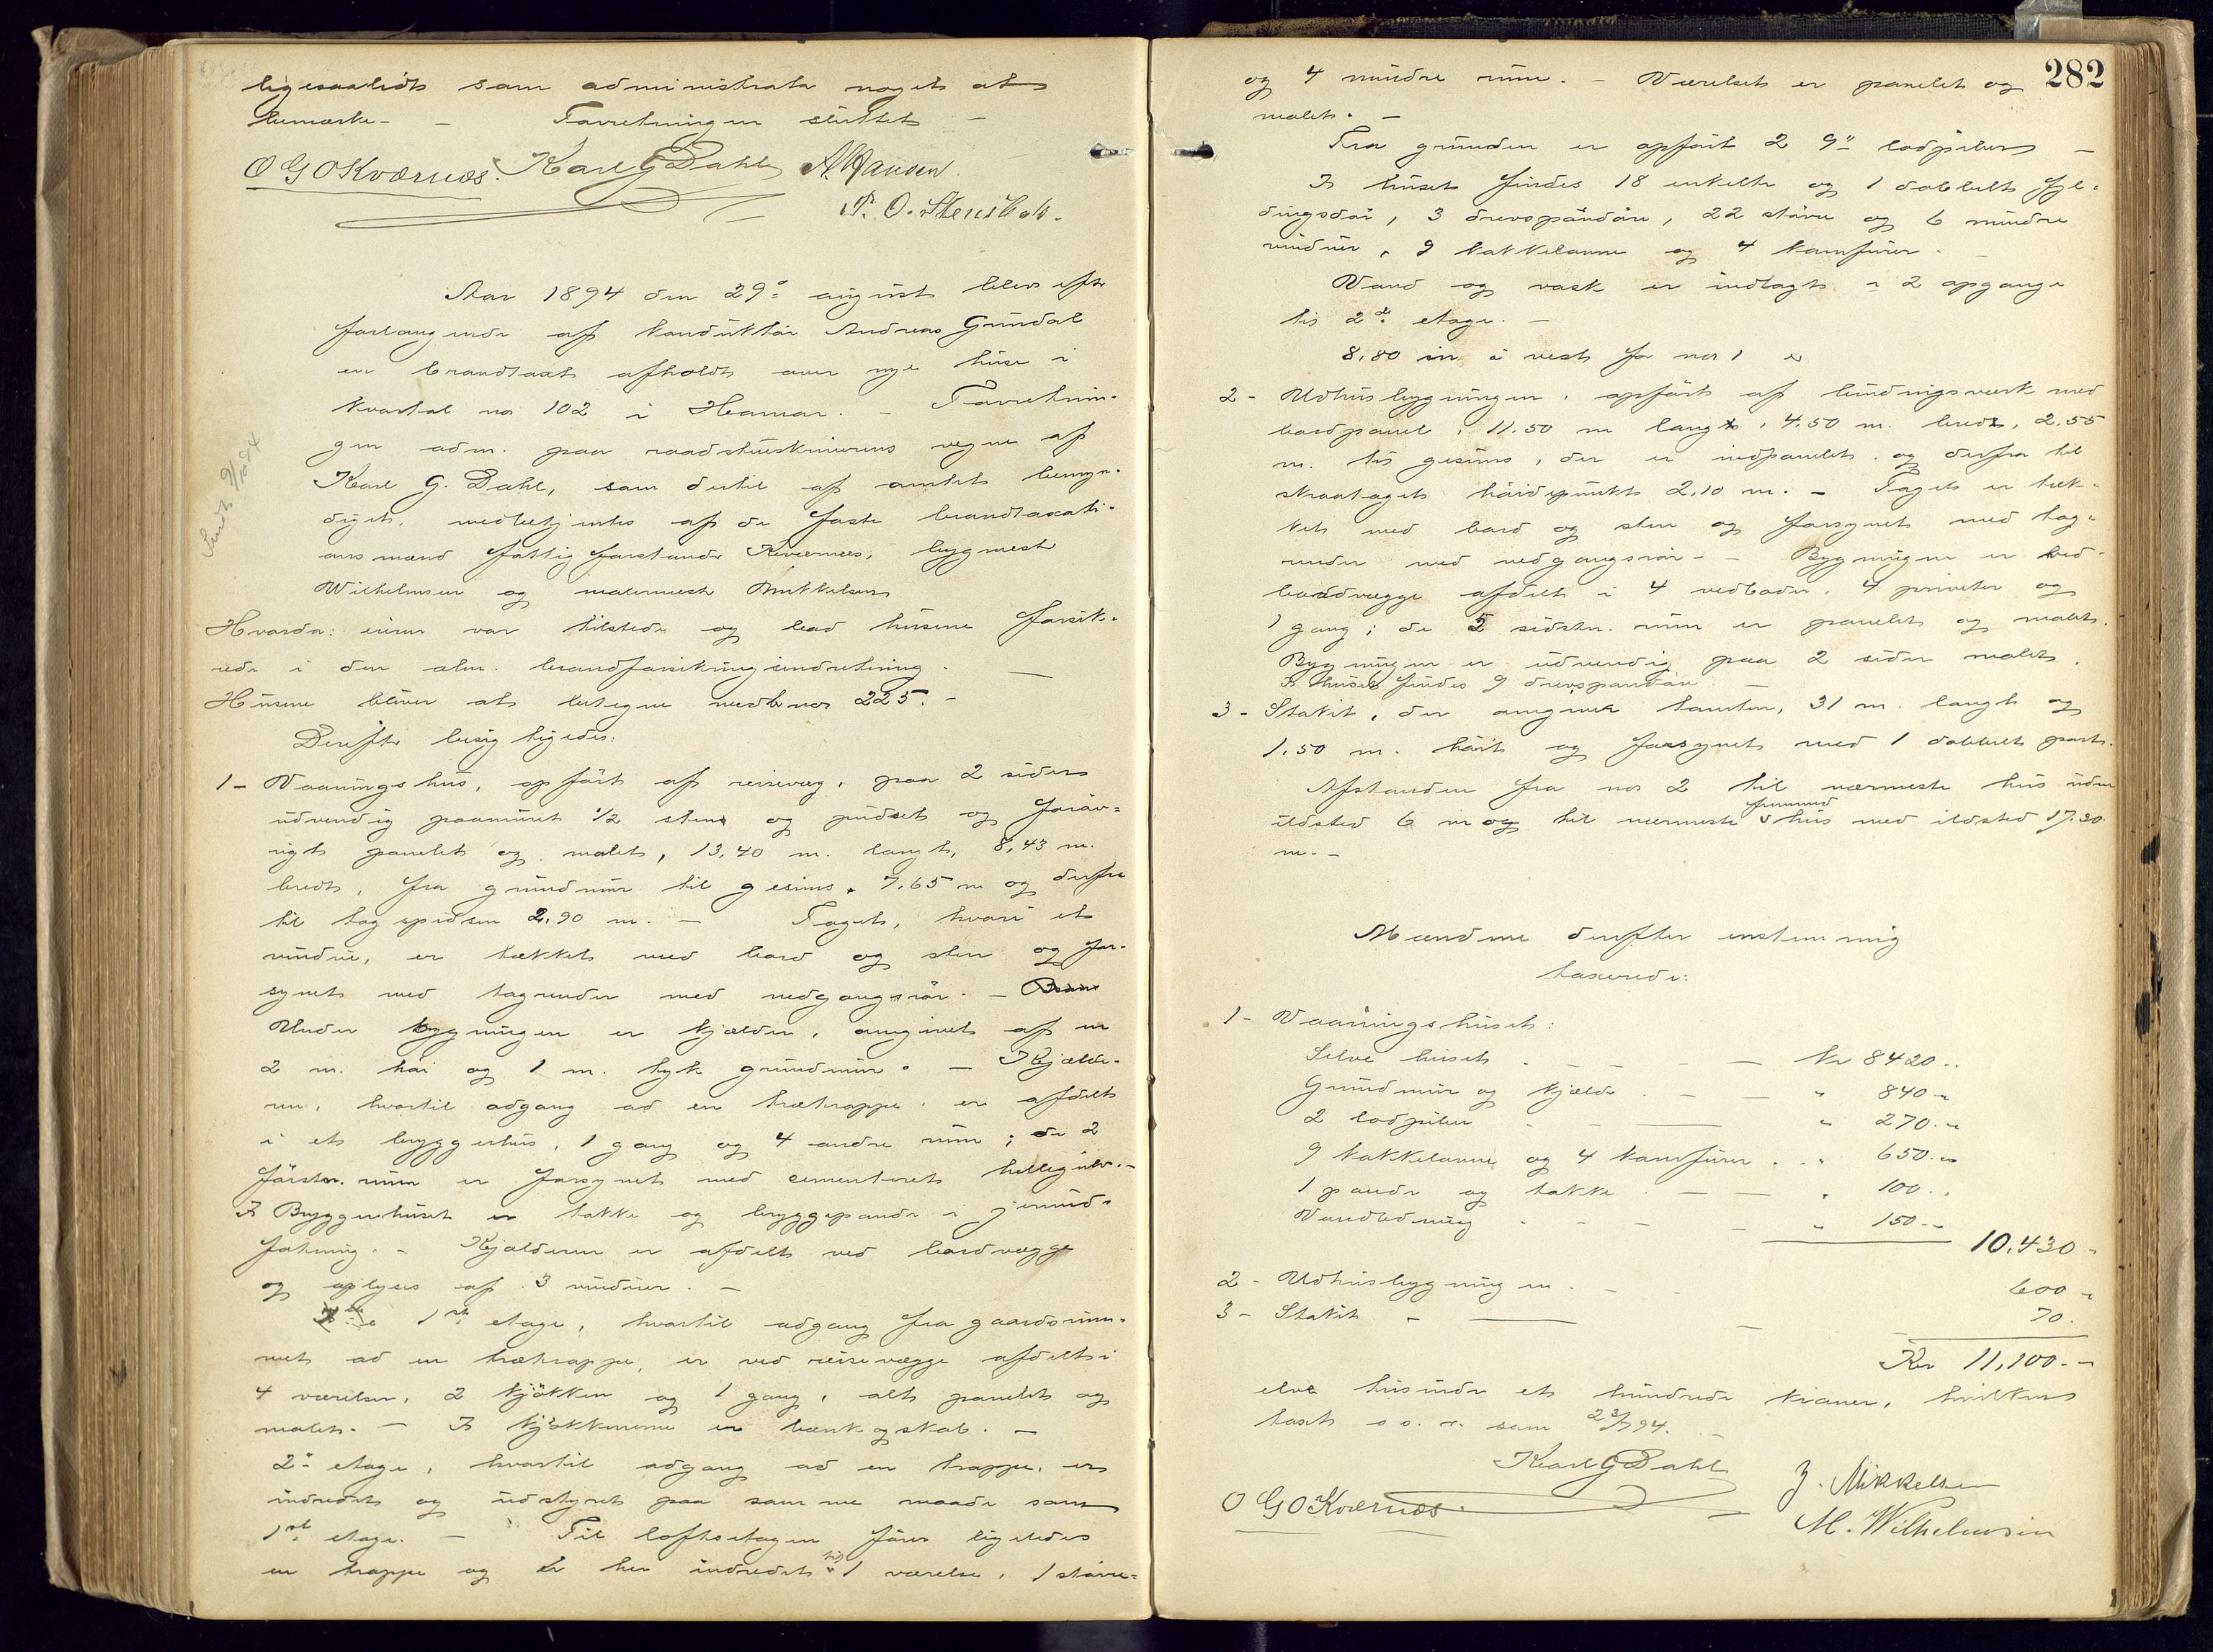 ligesaalidt som administrator noget at
bemærke. – Forretningen sluttet –
O G O Kværnæs. Karl G Dahl A. Hansen
P. O. Stensbak.
Aar 1894 den 29de august blev efter
forlangende af konduktør Andreas Gundal
en brandtaxt afholdt over nye huse i
kvartal no 102 i Hamar. – Forretnin-
gen adm. paa raadstueskriverens vegne af
Karl G. Dahl, som dertil af amtet bemyn-
diget, medbetjentes af de faste brandtaxati-
onsmænd fattigforstander Kværnæs, bygmester
Wilhelmsen og malermester Mikkelsen
Hvorda: eieren var tilstede og bad husene forsik-
rede i den alm. brandforsikringsindretning. –
Husene bliver at betegne med br no 225. –
Derefter besigtigedes:
1 – Vaaningshus, opført af reisevæg, paa 2 sider
udvendig paamuret ½ sten og pudset og forøv-
rigt panelet og malet, 13,40 m. langt, 8,43 m.
bredt, fra grundmur til gesims 7,65 m og derfra
til tagspidsen 2,90 m. – Taget, hvori et
vindue, er tækket med bord og sten og for-
synet med tagrender med nedgangsrør. –
Under bygningen er kjælder, omgivet af en
2 m. høi og 1 m. tyk grundmur. – Kjælde-
ren, hvortil adgang ad en trætrappe, er afdelt
i et bryggerhus, 1 gang og 4 andre rum; de 2
første rum er forsynet med cementeret hellegulv. –
I Bryggerhuset er takke og bryggepande i jernind-
fatning. – Kjælderen er afdelt ved bordvægge
og oplyses af 3 vinduer. –
1ste etage, hvortil adgang fra gaardsrum-
met ad en trætrappe, er ved reisevægge afdelt i
4 værelser, 2 kjøkken og 1 gang, alt panelet og
malet. – I kjøkkenerne er bænk og skab. –
2den etage, hvortil adgang ad en trappe, er
indredet og udstyret paa samme maade som
1ste etage. – Til loftsetagen fører ligeledes
en trappe og er her indredet til 1 værelse, 1 større
Sendt 9/10 94
282
og 4 mindre rum. – Værelset er panelet og
malet. –
Fra grunden er opført 2 9" lodpiber –
I huset findes 18 enkelte og 1 dobbelt fyl-
dingsdør, 3 drevspandøre, 22 større og 6 mindre
vinduer, 9 kakkelovne og 4 komfurer. –
Vand og vask er indlagt i 2 opgange
til 2den etage. –
8,80 m i vest for no 1 er
2 – Udhusbygningen, opført af bindingsværk med
bordpanel, 11.50 m langt, 4,50 m. bredt, 2.55
m. til gesims, der er indpanelet og derfra til
skraatagets høidepunkt 2,10 m. – Taget er tæk-
ket med bord og sten og forsynet med tag-
render med nedgangsrør – – Bygningen er ved
bordvægge afdelt i 4 vedboder, 4 priveter og
1 gang; de 5 sidste rum er panelet og malet.
Bygningen er udvendig paa 2 sider malet.
I huset findes 9 drevspandøre. –
3 – Stakit, der omgiver tomten, 31 m. langt og
1.50 m. høit og forsynet med 1 dobbelt port.
Afstanden fra no 2 til nærmeste hus uden
ildsted 6 m og til nærmeste fremmed hus med ildsted 17.30
m. –
Mændene derefter enstemmig
taxerede:
1 – Vaaningshuset:
Selve huset – Kr 8420 ..
Grundmur og kjælder – " 840 "
2 lodpiber – " 270. "
9 kakkelovne og 4 komfurer . . " 650. "
1 pande og takke – " 100 . .
Vandledning – " 150 – 
10,430 –
2 – Udhusbygningen . – 600 –
3 – Stakit – 70.
Kr 11,100. –
elve tusinde et hundrede kroner, hvilken
taxt o. s. v. som 23/7 94.
Karl G Dahl J. Mikkelsen
O G O Kværnæs. M. Wilhelmsen